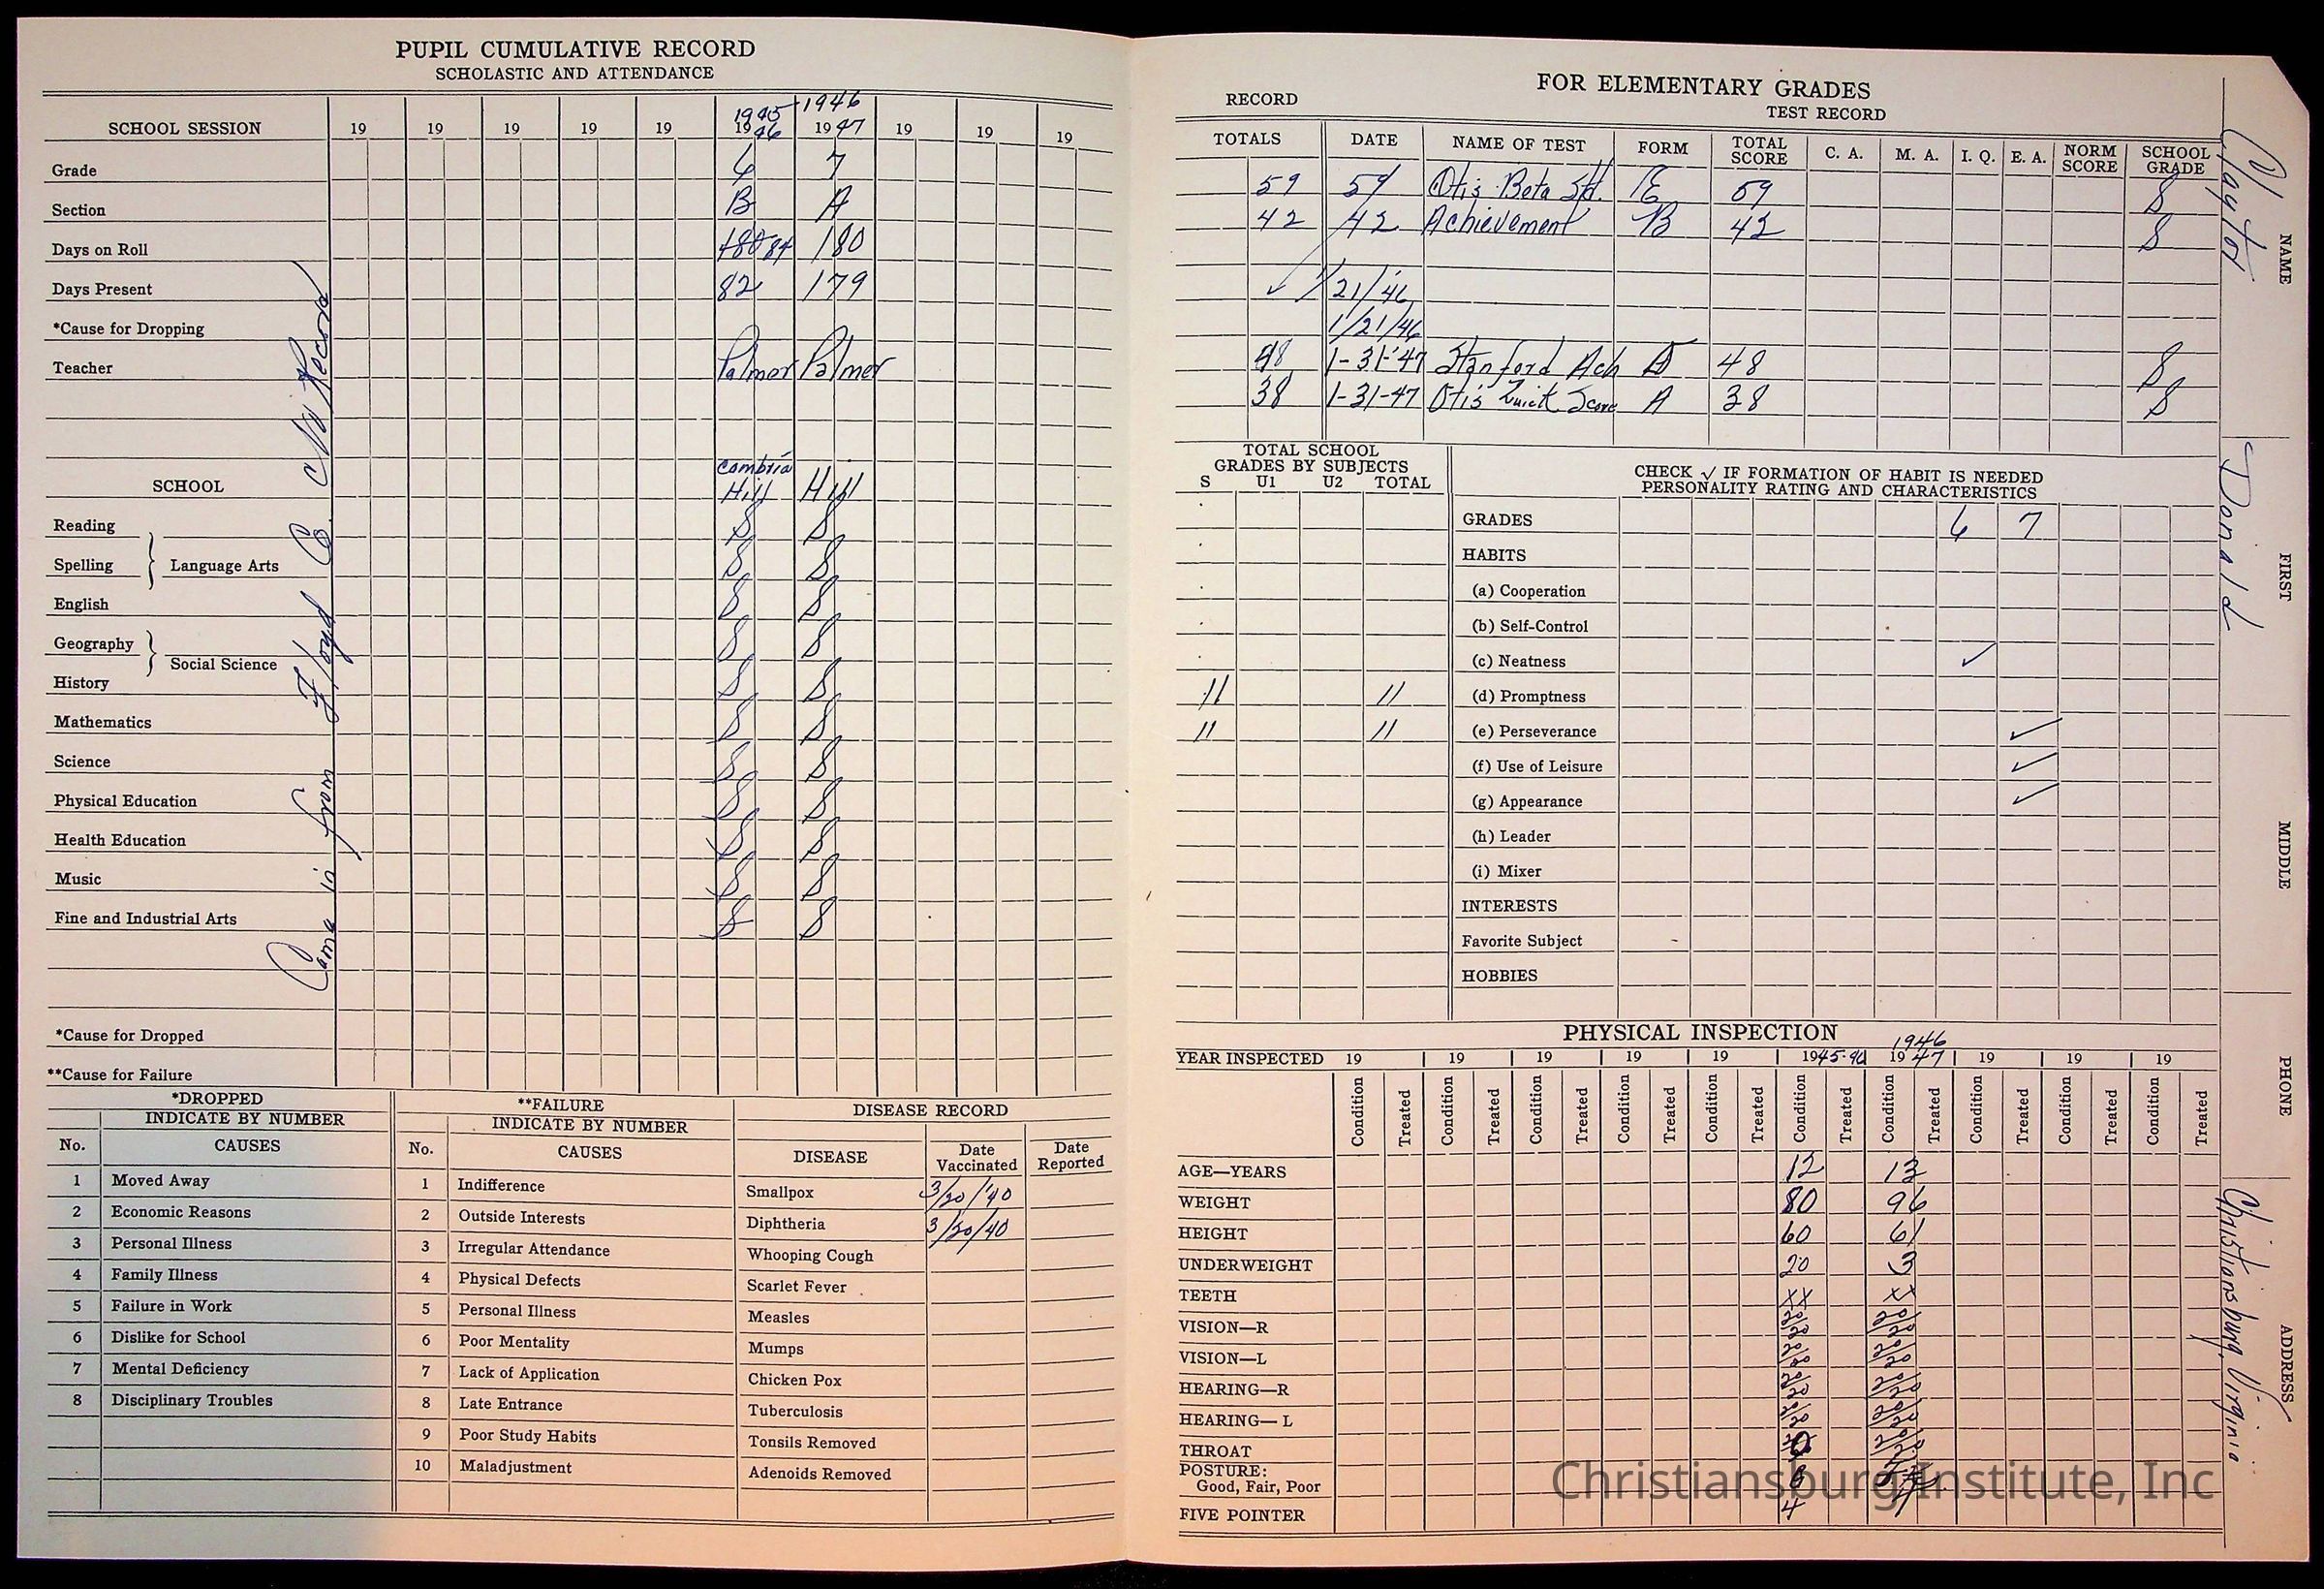 PUPIL CUMULATIVE RECORD
SCHOLASTIC AND ATTENDANCE
SCHOOL SESSION 19 19 19 19 19 1945 1946 19 46 1946 19 47 19 19 19
Grade 6 7
Section B A
Days on Roll 180 84 180
Days Present 82 179
*Cause for Dropping
Teacher Palmer Palmer
Came in from Floyd Co. No Record
SCHOOL Cambria Hill Hill
Reading S S
Spelling Language Arts S S
English S S
Geography S S
Social Science
History S S
Mathematics S S
Science S S
Physical Education S S
Health Education S S
Music S S
Fine and Industrial Arts S S
*Cause for Dropped
**Cause for Failure
*DROPPED
INDICATE BY NUMBER
No. CAUSES
1 Moved Away
2 Economic Reasons
3 Personal Illness
4 Family Illness
5 Failure in Work
6 Dislike for School
7 Mental Deficiency
8 Disciplinary Troubles
**FAILURE
INDICATE BY NUMBER
No. CAUSES
1 Indifference
2 Outside Interests
3 Irregular Attendance
4 Physical Defects
5 Personal Illness
6 Poor Mentality
7 Lack of Application
8 Late Entrance
9 Poor Study Habits
10 Maladjustment
DISEASE RECORD
DISEASE Date Vaccinated Date Reported
Smallpox 3/20/'40
Diphtheria 3/20/40
Whooping Cough
Scarlet Fever
Measles
Mumps
Chicken Pox
Tuberculosis
Tonsils Removed
Adenoids Removed
FOR ELEMENTARY GRADES
RECORD TEST RECORD
TOTALS DATE NAME OF TEST FORM TOTAL SCORE C. A. M. A. I. Q. E. A. NORM SCORE SCHOOL GRADE
59 59 Otis Beta E 59 S
42 42 Achievement B 42 S
✓ 1/21/'46
1/21/46
48 1-31-'47 Stanford Ach D 48 S
38 1-31-47 Otis Quick Score A 38 S
TOTAL SCHOOL
GRADES BY SUBJECTS
S U1 U2 TOTAL
11 11
11 11
CHECK ✓ IF FORMATION OF HABIT IS NEEDED
PERSONALITY RATING AND CHARACTERISTICS
GRADES 6 7
HABITS
(a) Cooperation
(b) Self-Control
(c) Neatness ✓
(d) Promptness
(e) Perseverance ✓
(f) Use of Leisure ✓
(g) Appearance ✓
(h) Leader
(i) Mixer
INTERESTS
Favorite Subject
HOBBIES
PHYSICAL INSPECTION
YEAR INSPECTED 19 19 19 19 19 1945-46 1946 19 47 19 19 19
Condition Treated Condition Treated Condition Treated Condition Treated Condition Treated Condition Treated Condition Treated Condition Treated Condition Treated Condition Treated
AGE—YEARS 12 13
WEIGHT 80 96
HEIGHT 60 61
UNDERWEIGHT 20 3
TEETH XX XX
VISION—R 20/20 20/20
VISION—L 20/20
HEARING—R 20/20 20/20
HEARING—L 20/20 20/20
THROAT
POSTURE:
Good, Fair, Poor
FIVE POINTER 4
NAME Claytor
FIRST Donald
MIDDLE
PHONE
ADDRESS Christiansburg, Virginia
Christiansburg Institute, Inc